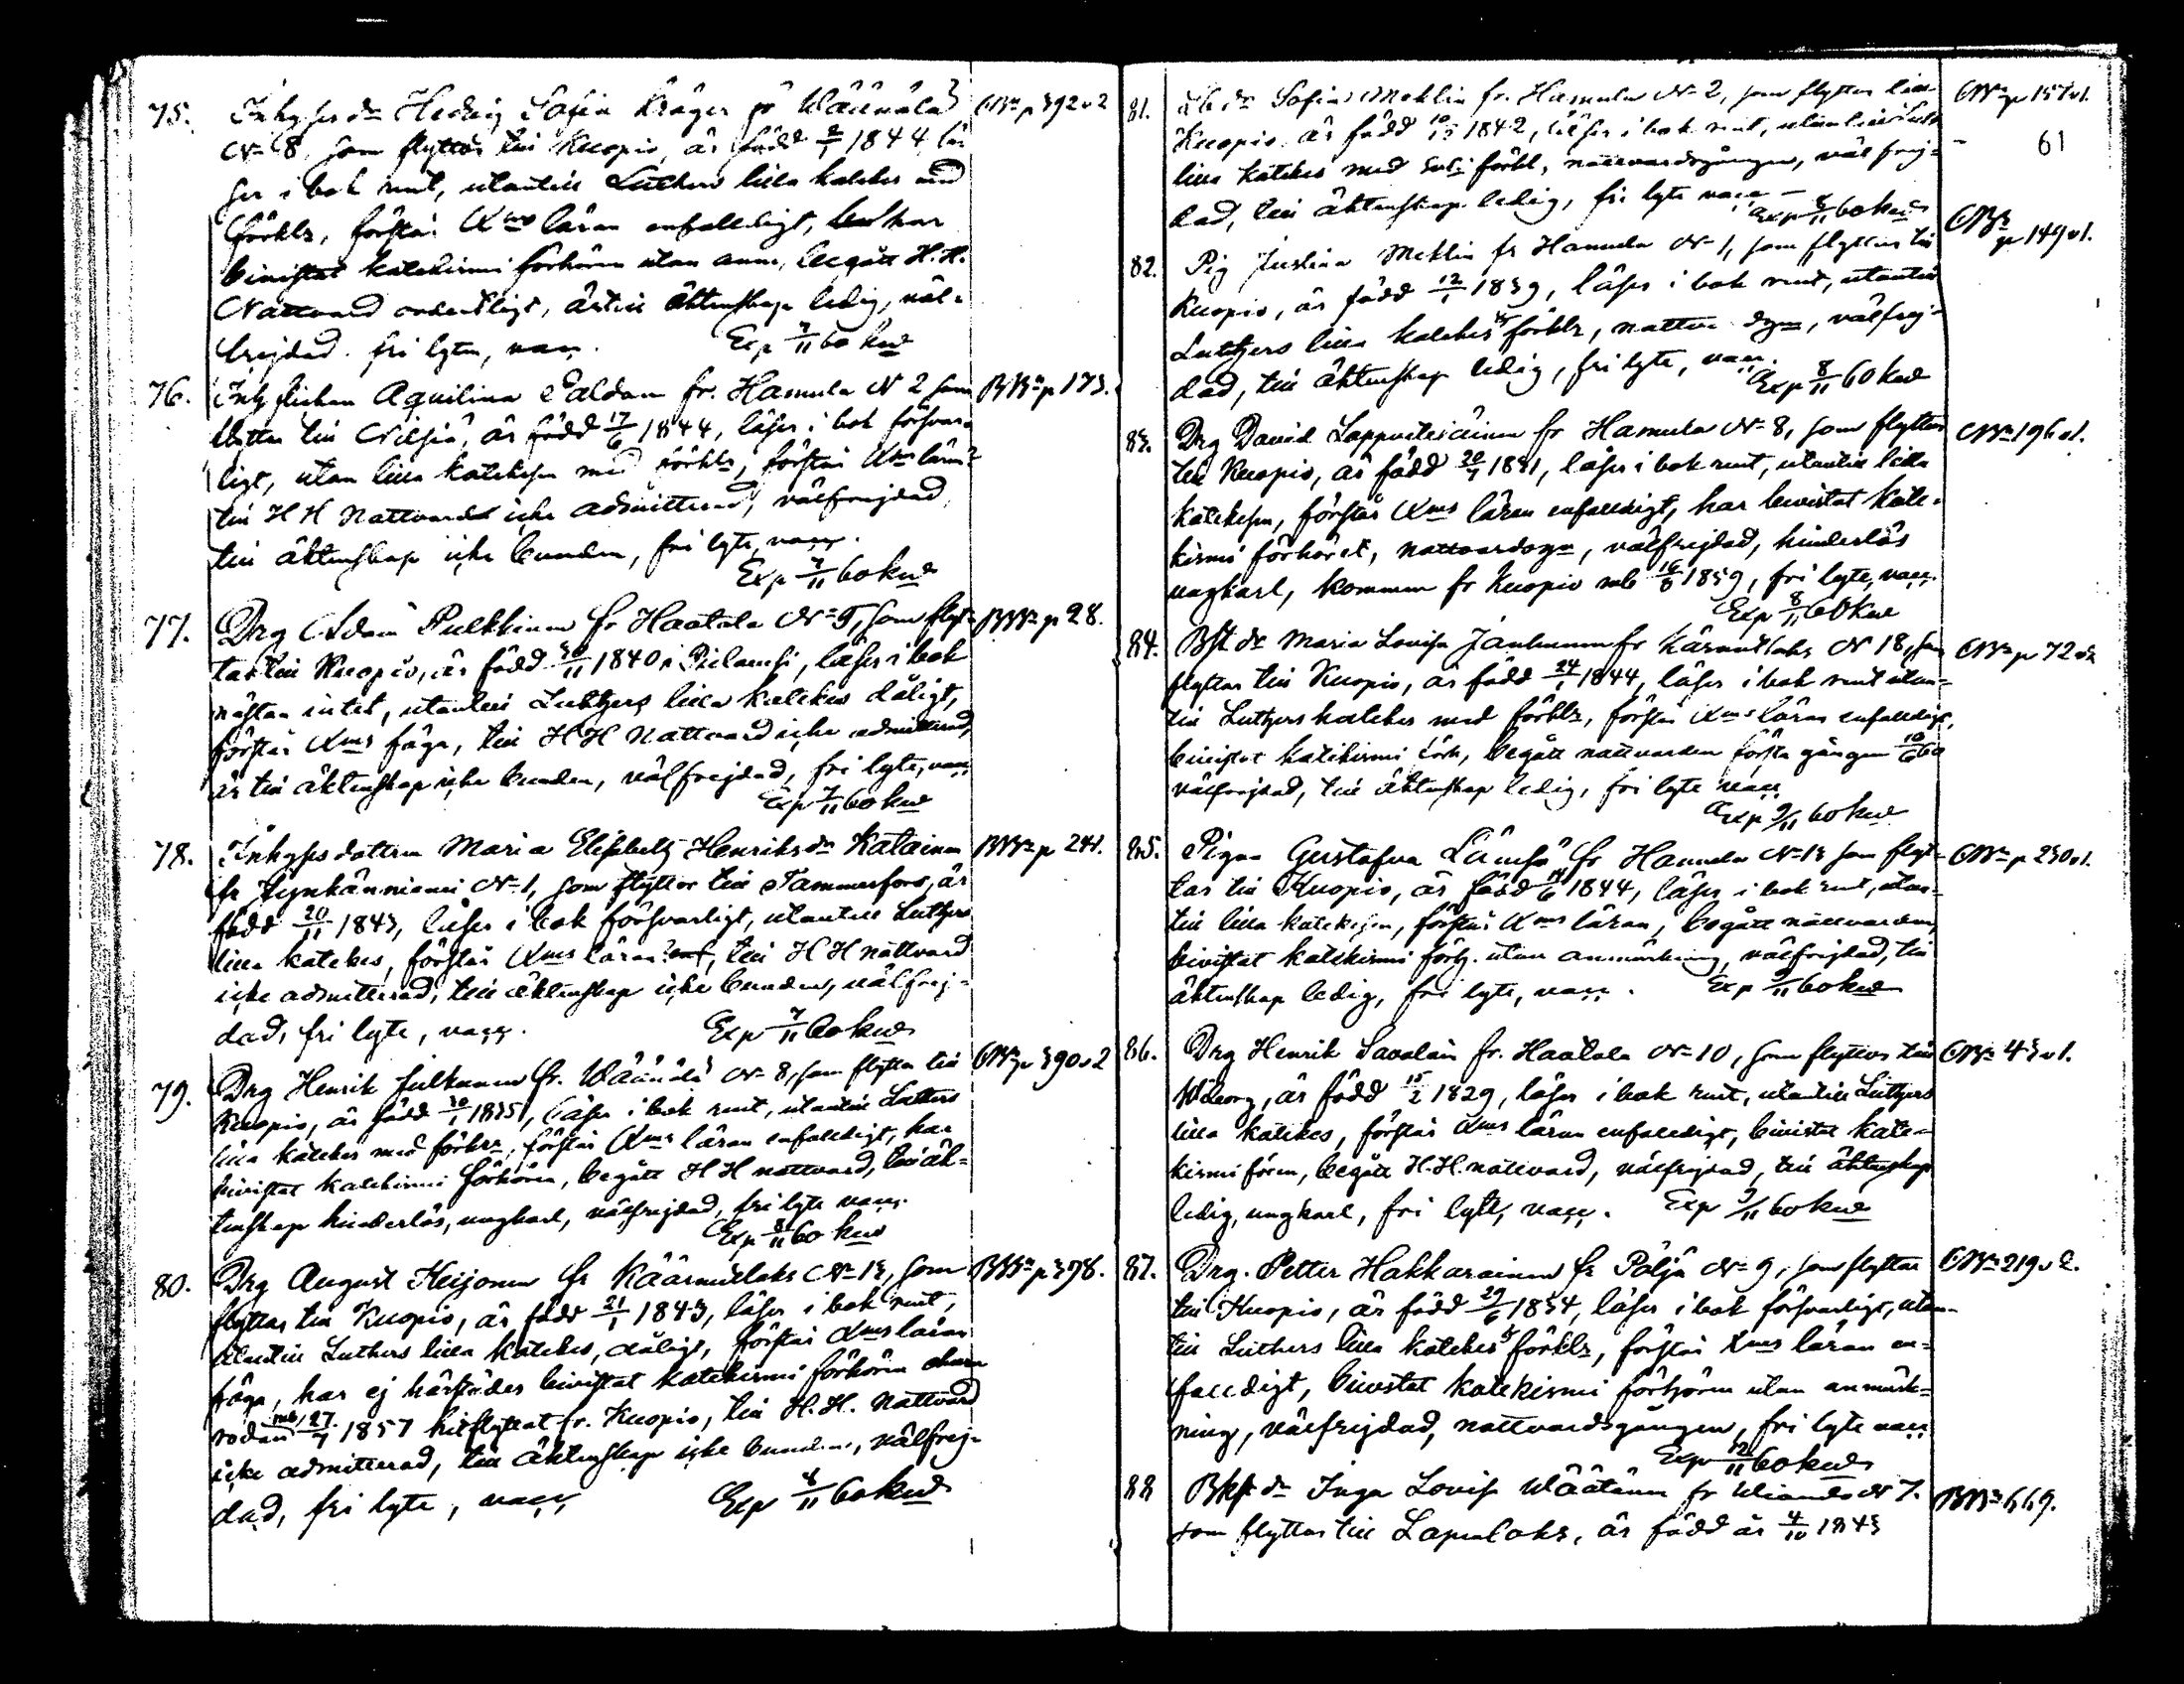 75. Inhyses dr Hedvig Sofia Kräger fr Wäänälä CBm p 392 v 2
N= 8, som flyttar till Kuopio, är född 2/1 1844, lä-
ser i bok rent, utantill Luthers lilla katekes med
förklr, förstår Xms läran enfalldigt, har
bivistat katekismi förhören utan anm, begått H. H.
Nattvard ordentligt, är till äktenskap ledig, väl-
frejdad. fri lyte, vacc. Exp 7/11 60 kwd
76. Inh flickan Aquilina Paldan fr. Hamula N 2 som BBm p 173.
flyttar till Nilsiä, är född 17/6 1844, läser i bok försvar-
ligt, utan lilla katekesen med förklr, förstår Xms läran
till H H Nattvard icke admitterad, välfrejdad,
till äktenskap icke bunden, fri lyte, vacc.
Exp 7/11 60 kwd
77. Drg Adam Pulkkinen fr Haatala N= 9, som flyt- BBm p 28.
tar till Kuopio, är född 30/11 1840 i Pielavesi, läser i bok
nästan intet, utantill Luthers lilla katekes dåligt,
förstår Xms föga, till H H Nattvard icke admitterad,
är till äktenskap icke bunden, välfrejdad, fri lyte, vacc
Exp 7/11 60 kwd
78. Inhyses dottren Maria Elisabeth Henriksdr Katainen BBm p 241.
fr Jynkänniemi N= 1, som flyttar till Tammerfors, är
född 20/11 1843, läser i bok försvarligt, utantill Luthers
lilla katekes, förstår Xms läran enf, till H H nattvard
icke admitterad, till äktenskap icke bunden, välfrej-
dad, fri lyte, vacc. Exp 7/11 60 kwd
79. Drg Henrik Julkunen fr. Wäänälä N= 8, som flyttar till CBm p 390 v 2
Kuopio, är född 30/1 1835, läser i bok rent, utantill Luthers
lilla katekes med förklr, förstår Xms läran enfalldigt, har
bivistat katekismi förhören, begått H H nattvard, till äk-
tenskap hinderlös, ungkarl, välfrejdad, fri lyte vacc.
Exp 8/11 60 kwd
80. Drg August Keijonen fr Käärmelaks N= 13, som BBm p 398.
flyttar till Kuopio, är född 21/1 1843, läser i bok rent,
utantill Luthers lilla katekes, dåligt, förstår Xms läran
föga, har ej härstädes bivistat katekismi förhören
mb 27/7 1857 hitflyttat fr. Kuopio, till H. H. Nattvard
icke admitterad, till äktenskap icke bunden, välfrej-
dad, fri lyte, vacc, Exp 8/11 60 kwd
81. dr Sofia Meklin fr. Hamula N= 2, som flyttar till CBm p 157 v 1.
Kuopio, är född 10/1842, läser i bok rent, utantill
61
lilla katekes med förkl, nattvardsgången, väl frej-
dad, till äktenskap ledig, fri lyte vacc
Exp 8/11 60 kwd
82. Pig Justina Meklin fr Hamula N= 1, som flyttar till CBm p 149 v 1.
Kuopio, är född 12/1 1839, läser i bok rent, utantill
Luthers lilla katekes förklr, nattv. välfrej-
dad, till äktenskap ledig, fri lyte, vacc.
Exp 8/11 60 kwd
83. Drg David Lappveteläinen fr Hamula N= 8, som flyttar CBm 196 v 1.
till Kuopio, är född 20/7 1831, läser i bok rent, utantill lilla
katekesen, förstår Xms läran enfalldigt, har bevistat kate-
kismi förhöret, nattvardsgn, välfrejdad, hinderlös
ungkarl, kommen fr Kuopio mb 16/5 1859, fri lyte, vacc.
Exp 8/11 60 kwd
84. Bst dr Maria Lovisa Jauhiainen fr Käärmelaks N 18, som CBm p 72 v 2
flyttar till Kuopio, är född 24/1 1844, läser i bok rent utan-
till Luthers katekes med förklr, förstår Xms läran enfalldigt,
bivistat katekismi förh, begått nattvarden första gången 10/6 60
välfrejdad, till äktenskap ledig, fri lyte vacc,
Exp 9/11 60 kwd
85. Pigan Gustafva Lämsä fr Hamula N= 13 som flyt- CBm p 230 v 1.
tar till Kuopio, är född 14/6 1844, läser i bok rent, utan-
till lilla katekesen, förstår Xms läran, begått nattvarden,
bivistat katekismi förh. utan anmärkning, välfrejdad, till
äktenskap ledig, fri lyte, vacc. Exp 9/11 60 kwd
86. Drg Henrik Savolain fr. Haatala N= 10, som flyttar till CBm 43 v 1.
Wiborg, är född 15/2 1829, läser i bok rent, utantill Luthers
lilla katekes, förstår Xms läran enfalldigt, bivistat kate-
kismi fören, begått H. H. nattvard, välfrejdad, till äktenskap
ledig, ungkarl, fri lyte, vacc. Exp 9/11 60 kwd
87. Drg. Petter Hakkarainen fr Pöljä N= 9, som flyttar CBm 219 v 2.
till Kuopio, är född 29/6 1834, läser i bok försvarligt, utan-
till Luthers lilla katekes förklr, förstår Xms läran en-
falldigt, bivistat katekismi förhören utan anmärk-
ning, välfrejdad, nattvardsgången, fri lyte vacc
Exp 12/11 60 kwd
88 dr Inga Lovisa Wäätäinen fr N 7. BBm 669.
som flyttar till Lapinlaks, är född är 4/10 1843